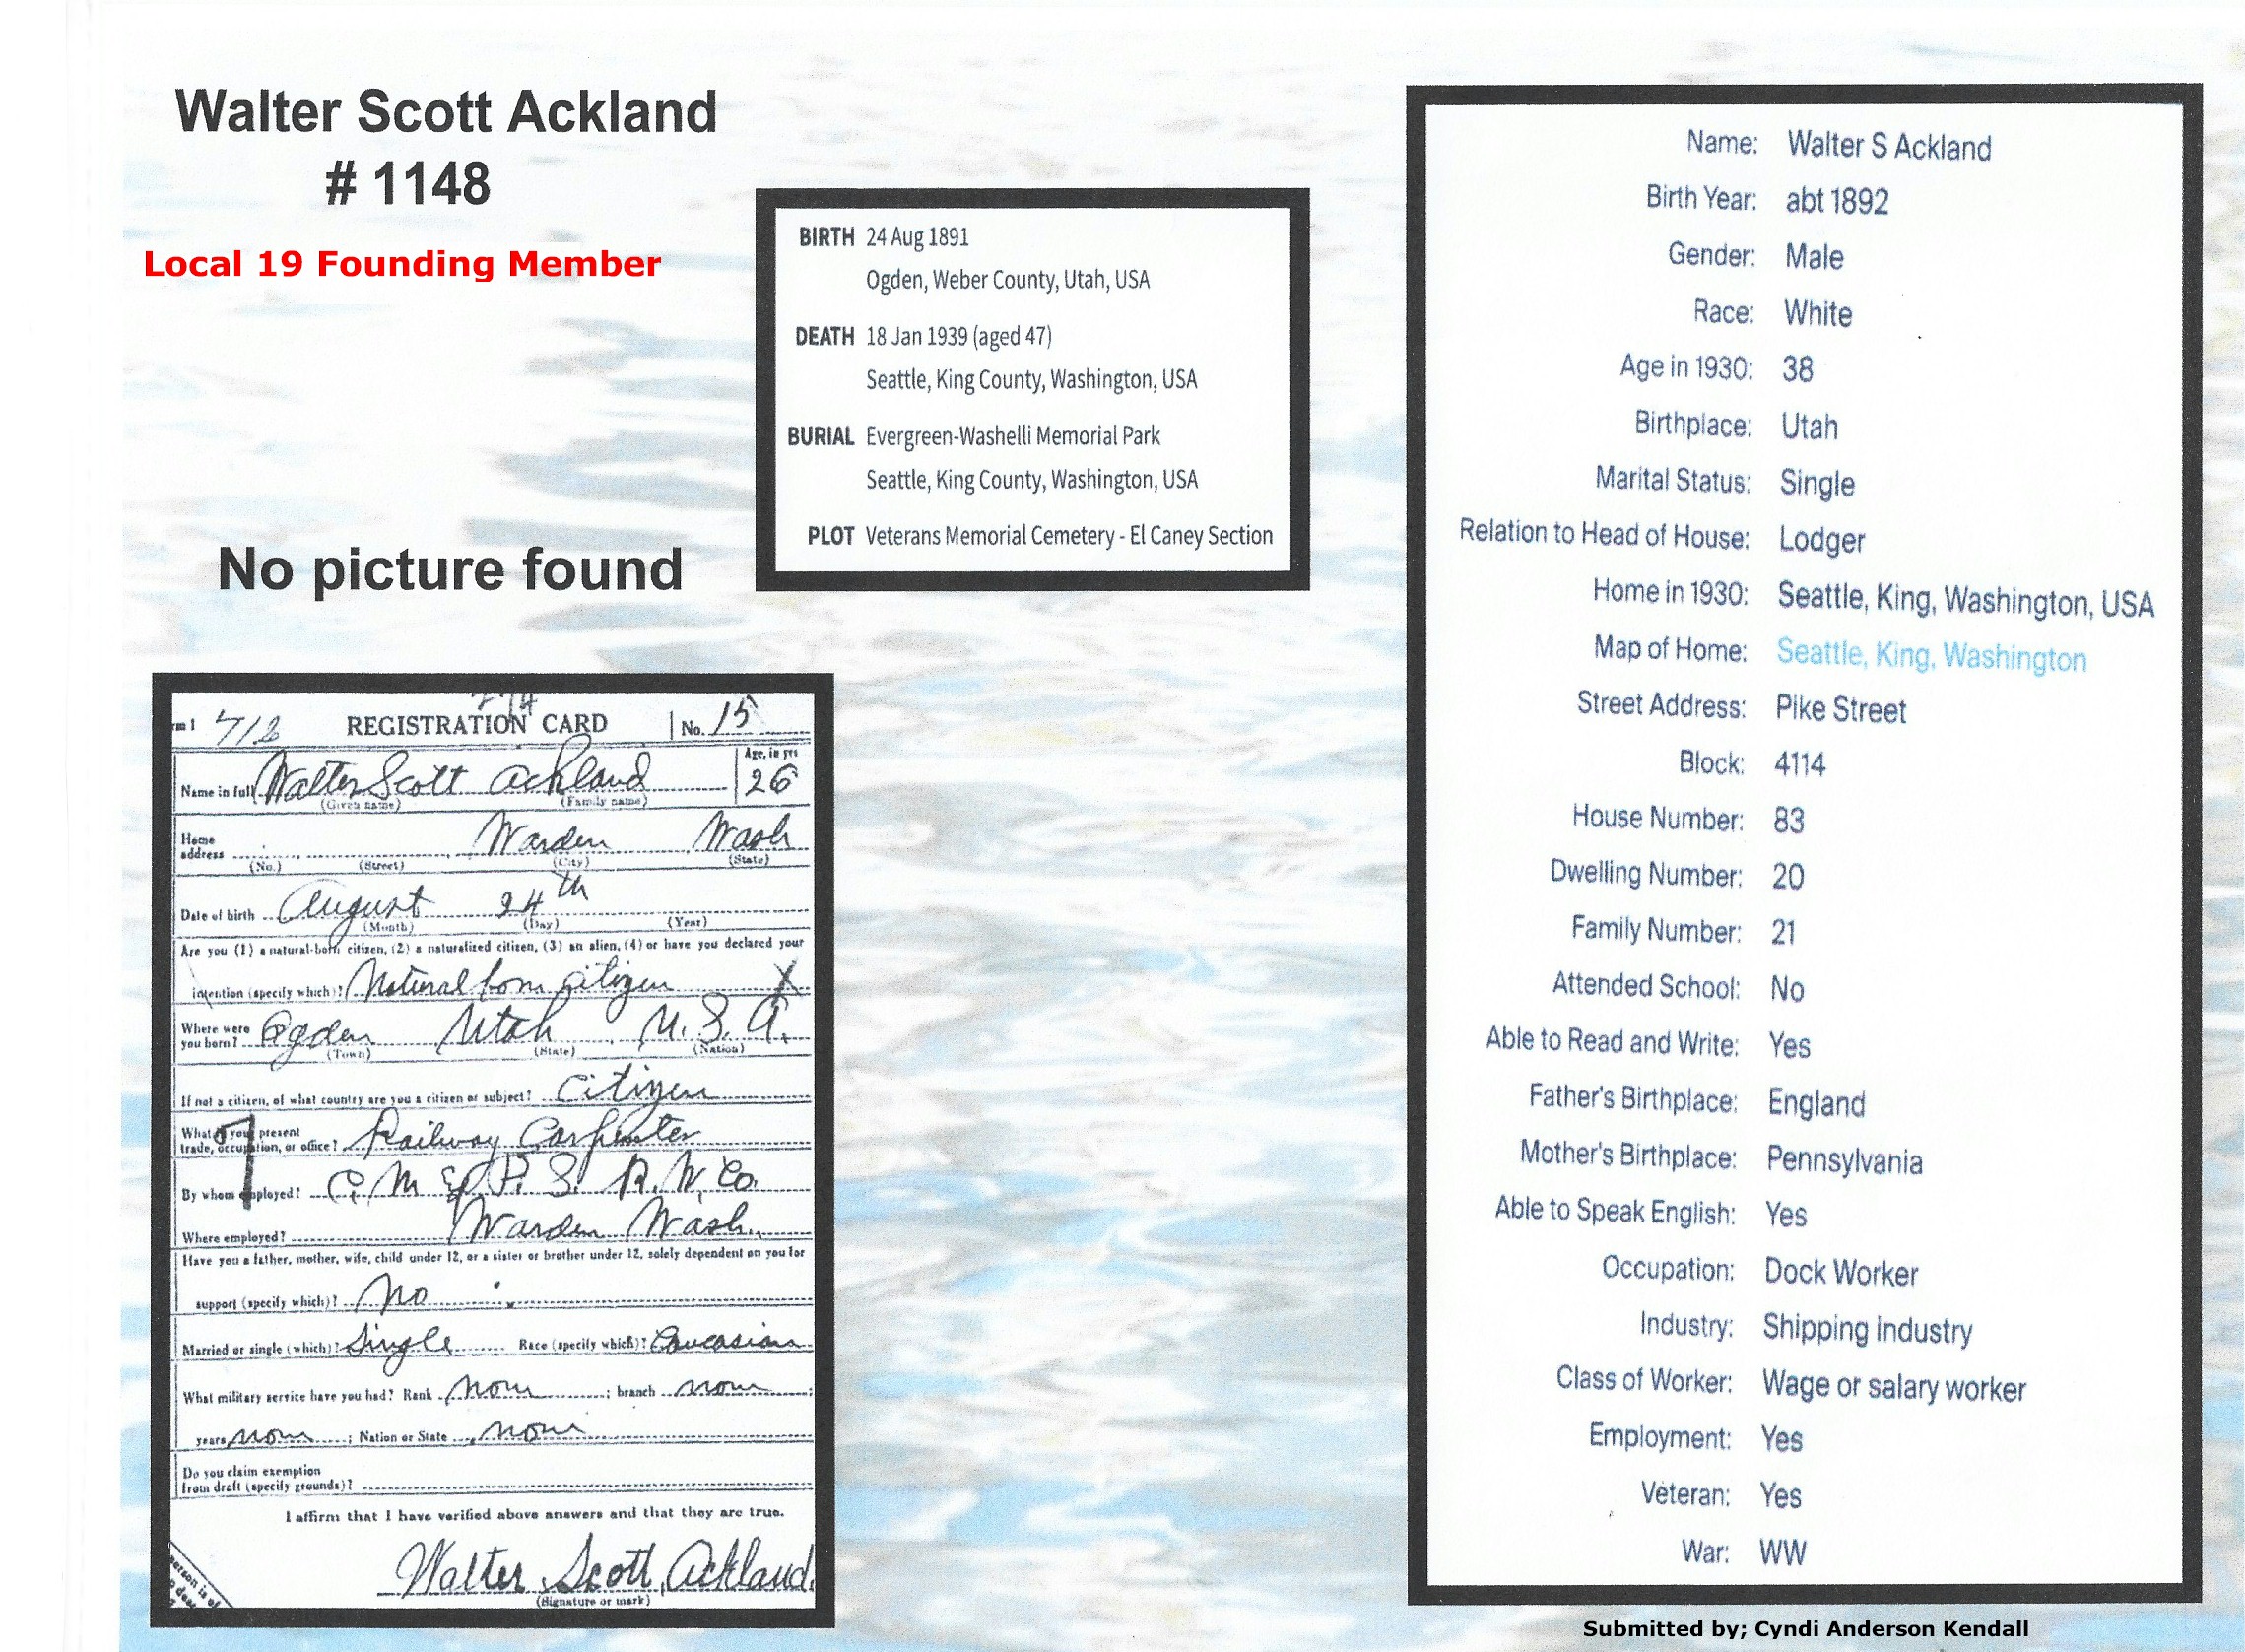 Walter Scott Ackland
# 1148
Local 19 Founding Member
BIRTH 24 Aug 1891
Ogden, Weber County, Utah, USA
DEATH 18 Jan 1939 (aged 47)
Seattle, King County, Washington, USA
BURIAL Evergreen-Washelli Memorial Park
Seattle, King County, Washington, USA
PLOT Veterans Memorial Cemetery - El Caney Section
No picture found
REGISTRATION CARD No. 15
Age, in yrs
Name in full Walter Scott Ackland 26
(Given name) (Family name)
Home address Warden Wash
(No.) (Street) (City) (State)
Date of birth August 24th
(Month) (Day) (Year)
Are you (1) a natural-born citizen, (2) a naturalized citizen, (3) an alien, (4) or have you declared your
intention (specify which)? Natural born citizen X
Where were you born? Ogden Utah U.S.A.
(Town) (State) (Nation)
If not a citizen, of what country are you a citizen or subject? Citizen
What your present
trade, occupation, or office? Railway Carpenter
By whom employed? C. M & P. S. R. W. Co.
Where employed? Warden Wash.
Have you a father, mother, wife, child under 12, or a sister or brother under 12, solely dependent on you for
support (specify which)? No
Married or single (which)? Single Race (specify which)? Caucasian
What military service have you had? Rank None; branch none
years none; Nation or State none
Do you claim exemption
from draft (specify grounds)?
I affirm that I have verified above answers and that they are true.
Walter Scott Ackland
(Signature or mark)
Name: Walter S Ackland
Birth Year: abt 1892
Gender: Male
Race: White
Age in 1930: 38
Birthplace: Utah
Marital Status: Single
Relation to Head of House: Lodger
Home in 1930: Seattle, King, Washington, USA
Map of Home: Seattle, King, Washington
Street Address: Pike Street
Block: 4114
House Number: 83
Dwelling Number: 20
Family Number: 21
Attended School: No
Able to Read and Write: Yes
Father's Birthplace: England
Mother's Birthplace: Pennsylvania
Able to Speak English: Yes
Occupation: Dock Worker
Industry: Shipping industry
Class of Worker: Wage or salary worker
Employment: Yes
Veteran: Yes
War: WW
Submitted by; Cyndi Anderson Kendall